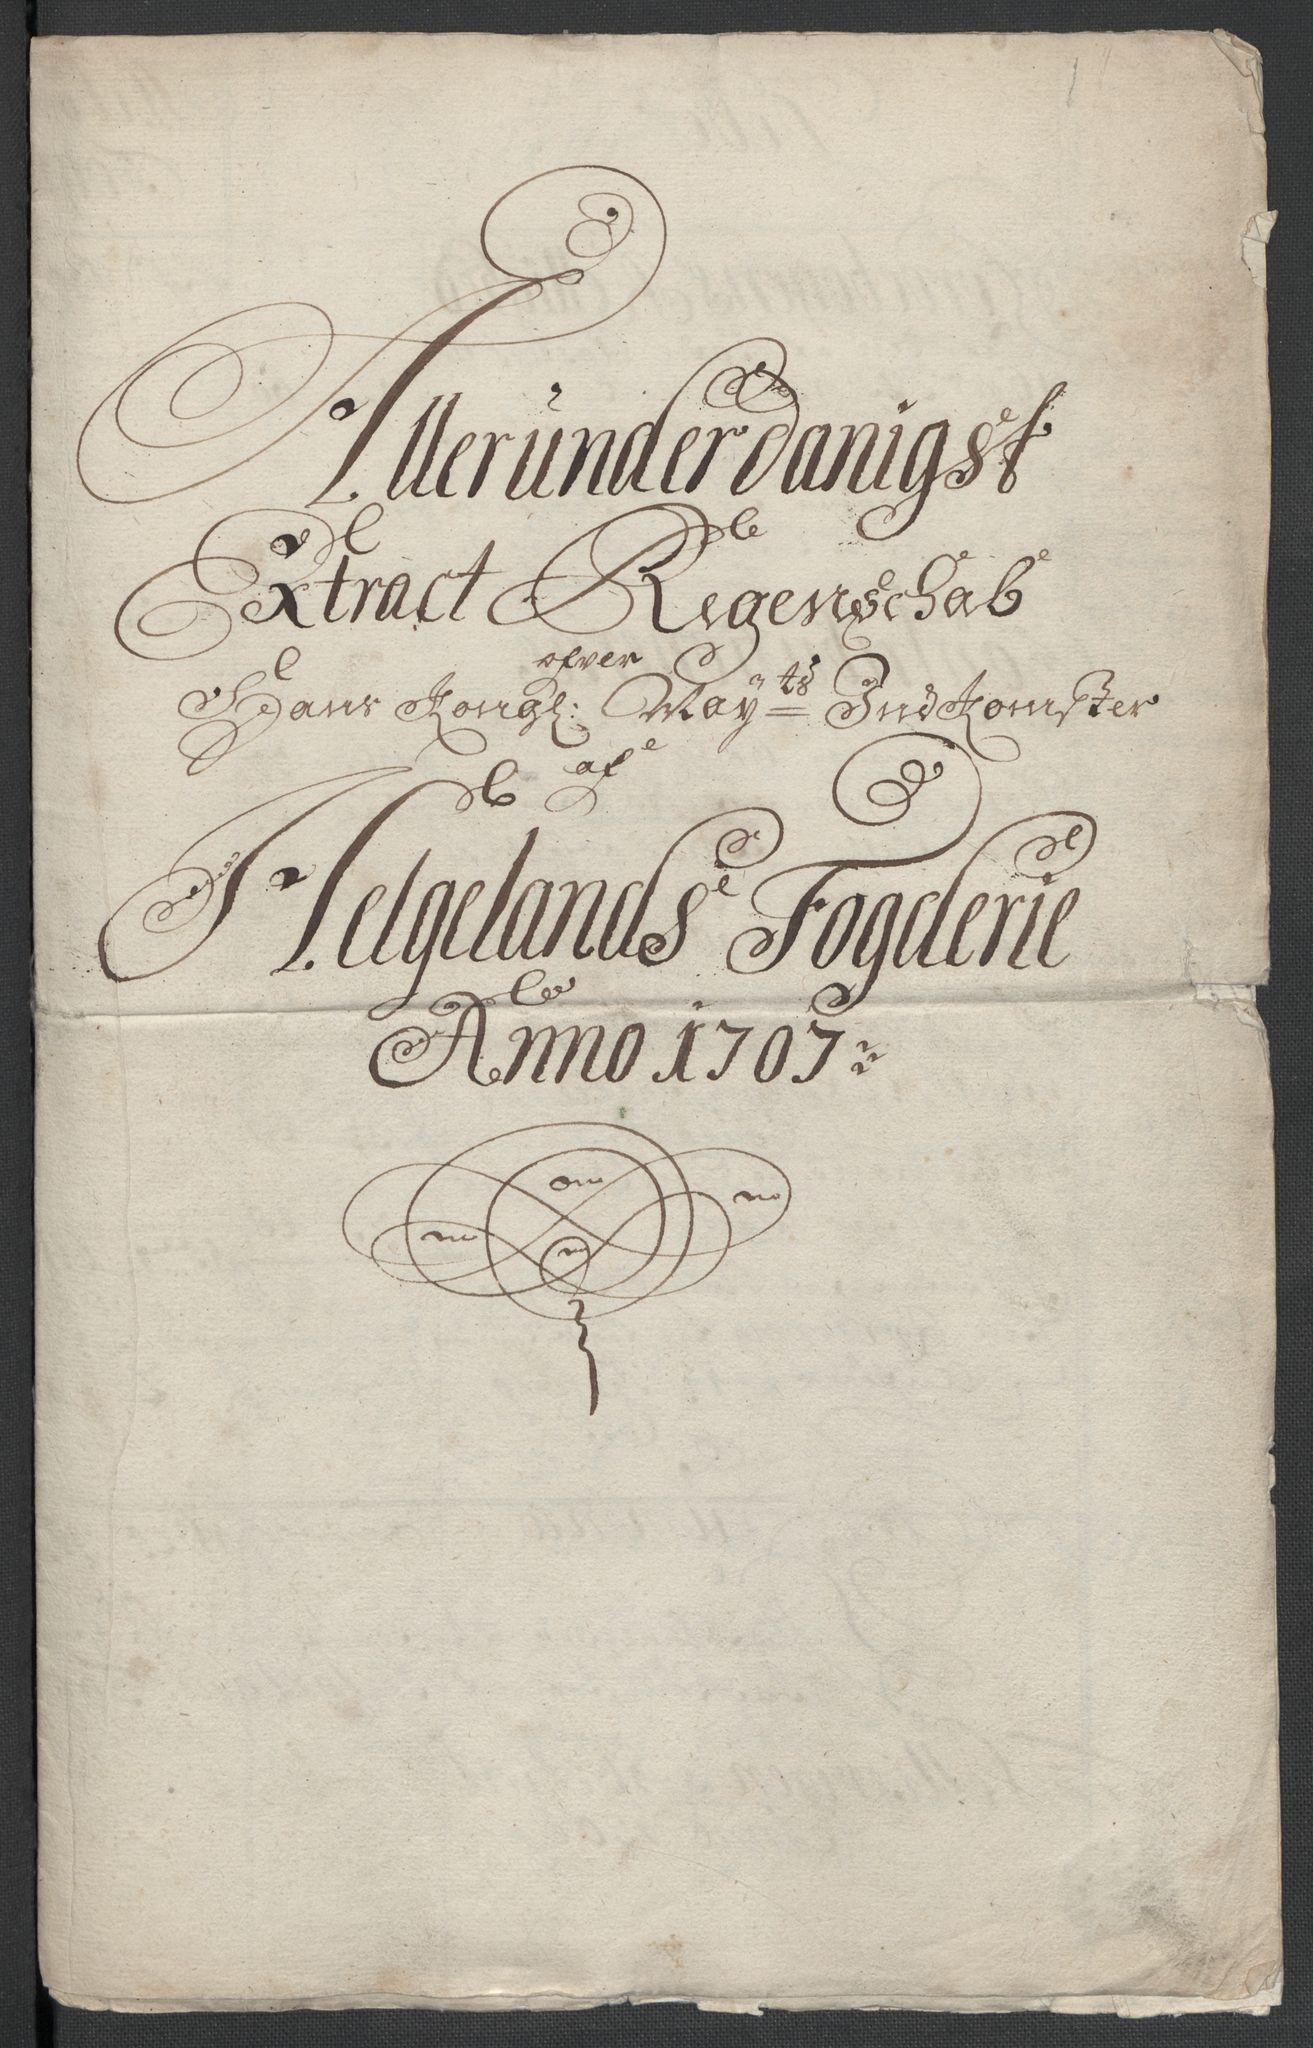 Alleründerdanigst
Extract Regenschab
ofver
Hans Kongl: Mayts Indkomster
af
Helgelands Fogderie
Anno 1707